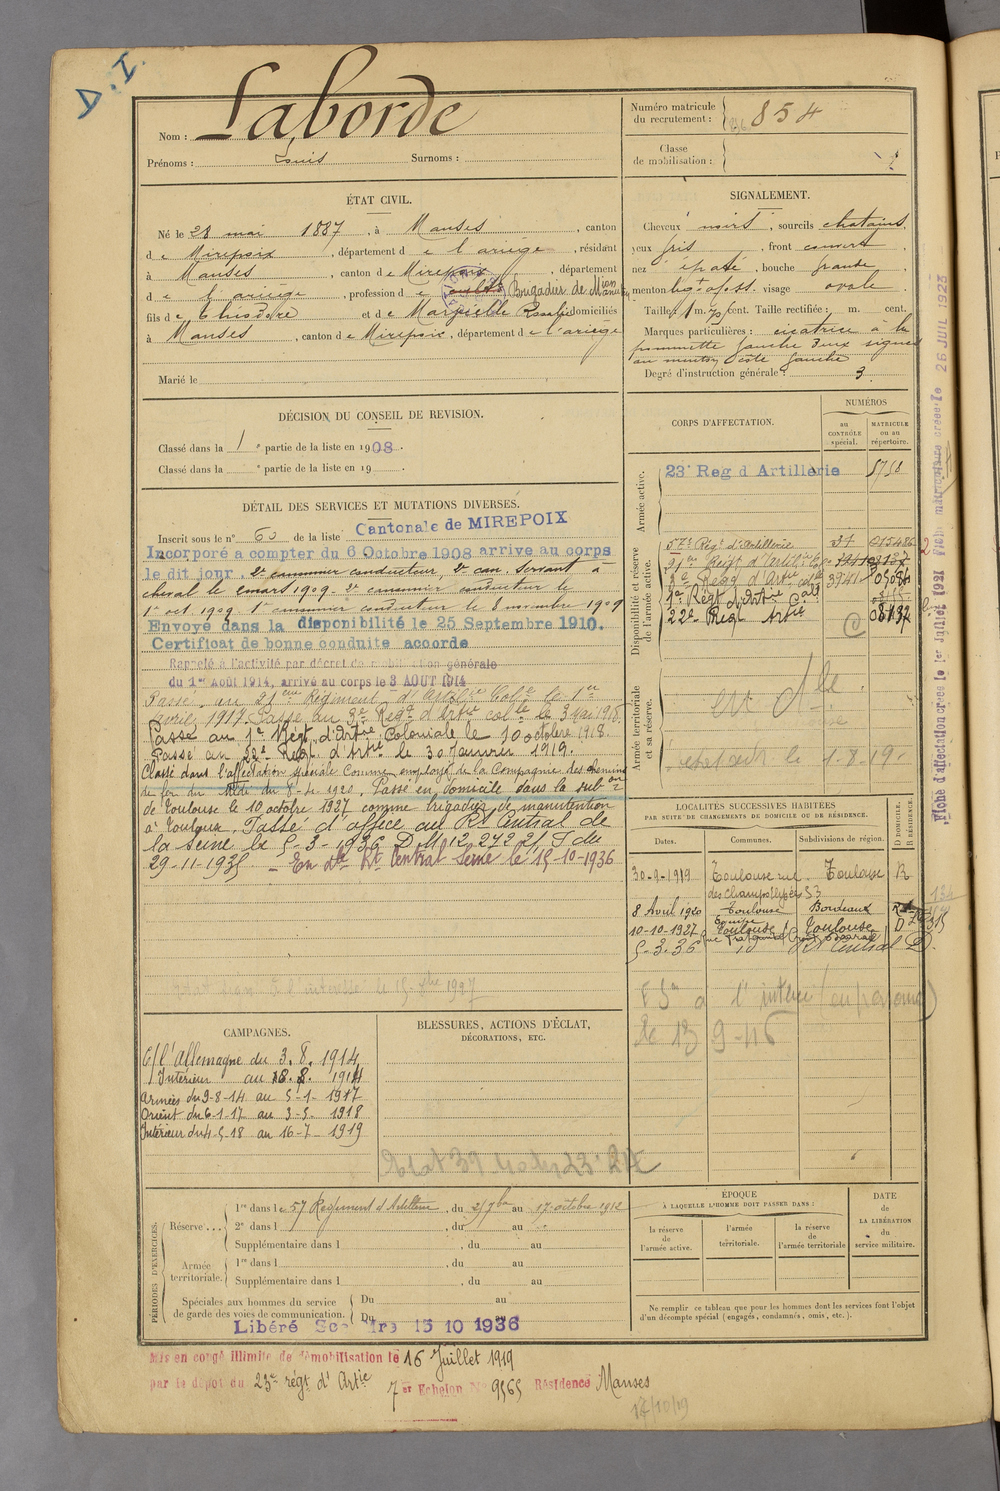 D.I.
Nom : Laborde
Prénoms : Louis Surnoms :
Numéro matricule du recrutement : 854
Classe de mobilisation :
ÉTAT CIVIL.
Né le 28 mai 1887, à Manses, canton
de Mirepoix, département de l'ariège, résidant
à Manses, canton de Mirepoix, département
de l'ariège, profession de Brigadier de
fils de Théodore et de Marseille Rosalie domiciliés
à Manses, canton de Mirepoix, département de l'ariège
Marié le
SIGNALEMENT.
Cheveux noirs, sourcils chatains
yeux gris, front couvert
nez épaté, bouche grande
menton visage ovale
Taille 1 m. 70 cent. Taille rectifiée : m. cent.
Marques particulières : cicatrice à la
pommette gauche Deux signes
au menton côté gauche
Degré d'instruction générale : 3
DÉCISION DU CONSEIL DE REVISION.
Classé dans la 1e partie de la liste en 1908.
Classé dans la e partie de la liste en 19
CORPS D'AFFECTATION.
NUMÉROS
au CONTRÔLE spécial.
MATRICULE ou au répertoire.
Armée active.
23e Reg d Artillerie
Disponibilité et réserve de l'armée active.
57e Régt d'Artillerie
21e Regt d'Artie
3e Regt d'Artie cole
1e Régt d'Artie Cole
22e Regt Artie
Armée territoriale et sa réserve.
1-8-19
DÉTAIL DES SERVICES ET MUTATIONS DIVERSES.
Inscrit sous le n° 60 de la liste Cantonale de MIREPOIX
Incorporé a compter du 6 Octobre 1908 arrive au corps
le dit jour. 2e canonnier conducteur, 2e can. servant à
cheval le 6 mars 1909. 2e canonnier conducteur le
1er oct. 1909. 1er canonnier conducteur le 8 novembre 1909
Envoyé dans la disponibilité le 25 Septembre 1910.
Certificat de bonne conduite accorde
Rappelé à l'activité par décret de mobilisation générale
du 1er Août 1914, arrivé au corps le 3 AOUT 1914
Passé au 21ème Régiment d'Artie Colle le 1er
avril 1917. Passé au 3e Regt d'Artie colle le 3 Mai 1918.
Passé au 1er Régt d'Artie Coloniale le 10 octobre 1918.
Passé au 22e Regt d'Artie le 30 Janvier 1919.
Classé dans l'affectation spéciale comme employé de la Compagnie des chemins
de fer du Midi du 8-4-1920. Passé en domicile dans la subon
de Toulouse le 10 octobre 1927 comme brigadier de manutention
à Toulouse. Passé d'office au Rt Central de
la Seine le 5-3-1936 D.M. 12.272
29-11-1935 - En dle Rt Central Seine le 15-10-1936
LOCALITÉS SUCCESSIVES HABITÉES
PAR SUITE DE CHANGEMENTS DE DOMICILE OU DE RÉSIDENCE.
Dates.
Communes.
Subdivisions de région.
D DOMICILE. R RÉSIDENCE.
30-9-1919 Toulouse rue des Champs Elysées 53 Toulouse R
8 Avril 1920 Toulouse Bordeaux
10-10-1927 Toulouse Toulouse D
5-3-36 Rt Central D.
13 9-46
CAMPAGNES.
C/ l'Allemagne du 3.8.1914
Intérieur au 8.8.1914
Armées du 9-8-14 au 5-1-1917
Orient du 6-1-17 au 3-5-1918
Intérieur du 4-5-18 au 16-7-1919
BLESSURES, ACTIONS D'ÉCLAT,
DÉCORATIONS, ETC.
PÉRIODES D'EXERCICES.
Réserve...
1re dans le 57 Régiment d'Artillerie, du 27 7bre au 17 octobre 1912
2e dans l , du au
Supplémentaire dans l , du au
Armée territoriale.
1re dans l , du au
Supplémentaire dans l , du au
Spéciales aux hommes du service de garde des voies de communication. Du au
Du
Libéré 15 10 1936
ÉPOQUE
À LAQUELLE L'HOMME DOIT PASSER DANS :
la réserve de l'armée active.
l'armée territoriale.
la réserve de l'armée territoriale
DATE de LA LIBÉRATION du service militaire.
Ne remplir ce tableau que pour les hommes dont les services font l'objet
d'un décompte spécial (engagés, condamnés, omis, etc.).
Mis en congé illimité de démobilisation le 16 Juillet 1919
par le dépôt du 23e régt d'Artie 7er Echelon N° 9565 Résidence Manses
17/10/19
Fiche d'affectation créée le 1er Juillet 1921 Fiche matriculaire créée le 26 JUIL 1923